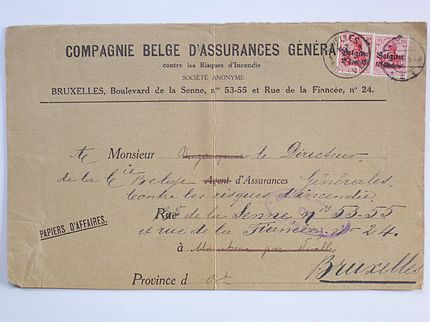 COMPAGNIE BELGE D'ASSURANCES GÉNÉRA
contre les Risques d'Incendie
SOCIÉTÉ ANONYME
BRUXELLES, Boulevard de la Senne, nos 53-55 et Rue de la Fiancée, n° 24.
Monsieur le Directeur
de la Cie Belge Agent d'Assurances Générales
contre les risques d'incendie,
Rue de la Senne nos 53-55
et rue de la Fiancée, n° 24.
PAPIERS D'AFFAIRES.
à
Bruxelles
Province d
Belgien
Belgien